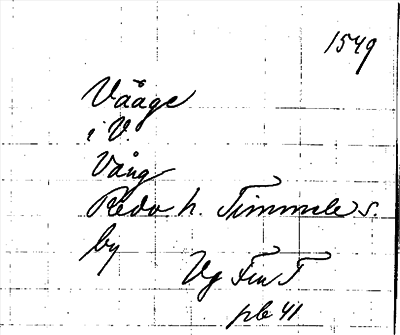 1549
Vääge
i V.
Vång
Redv h. Timmele s.
by
Vg Fru T
pb 41